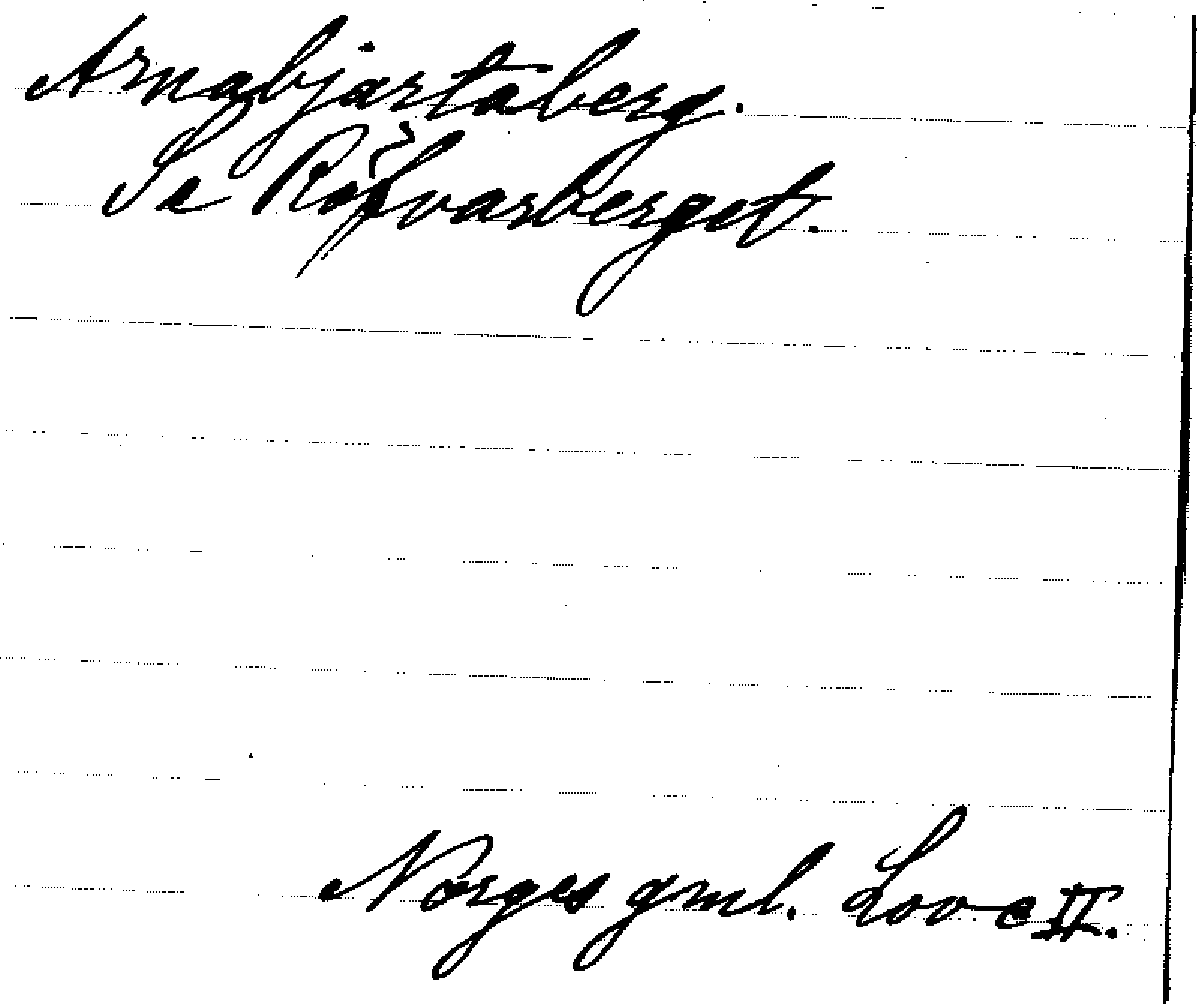 Arnabjartaberg.
Se Röfvarberget.
Norges gml. Love II.